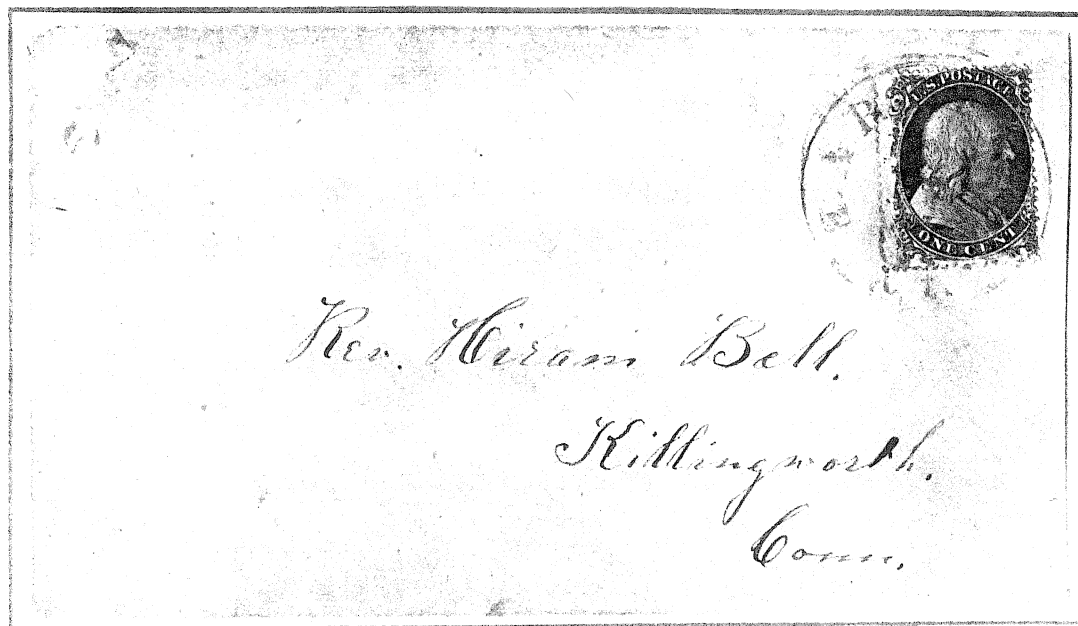 U.S. POSTAGE
ONE CENT
Rev. Hiram Bell.
Killingworth.
Conn.